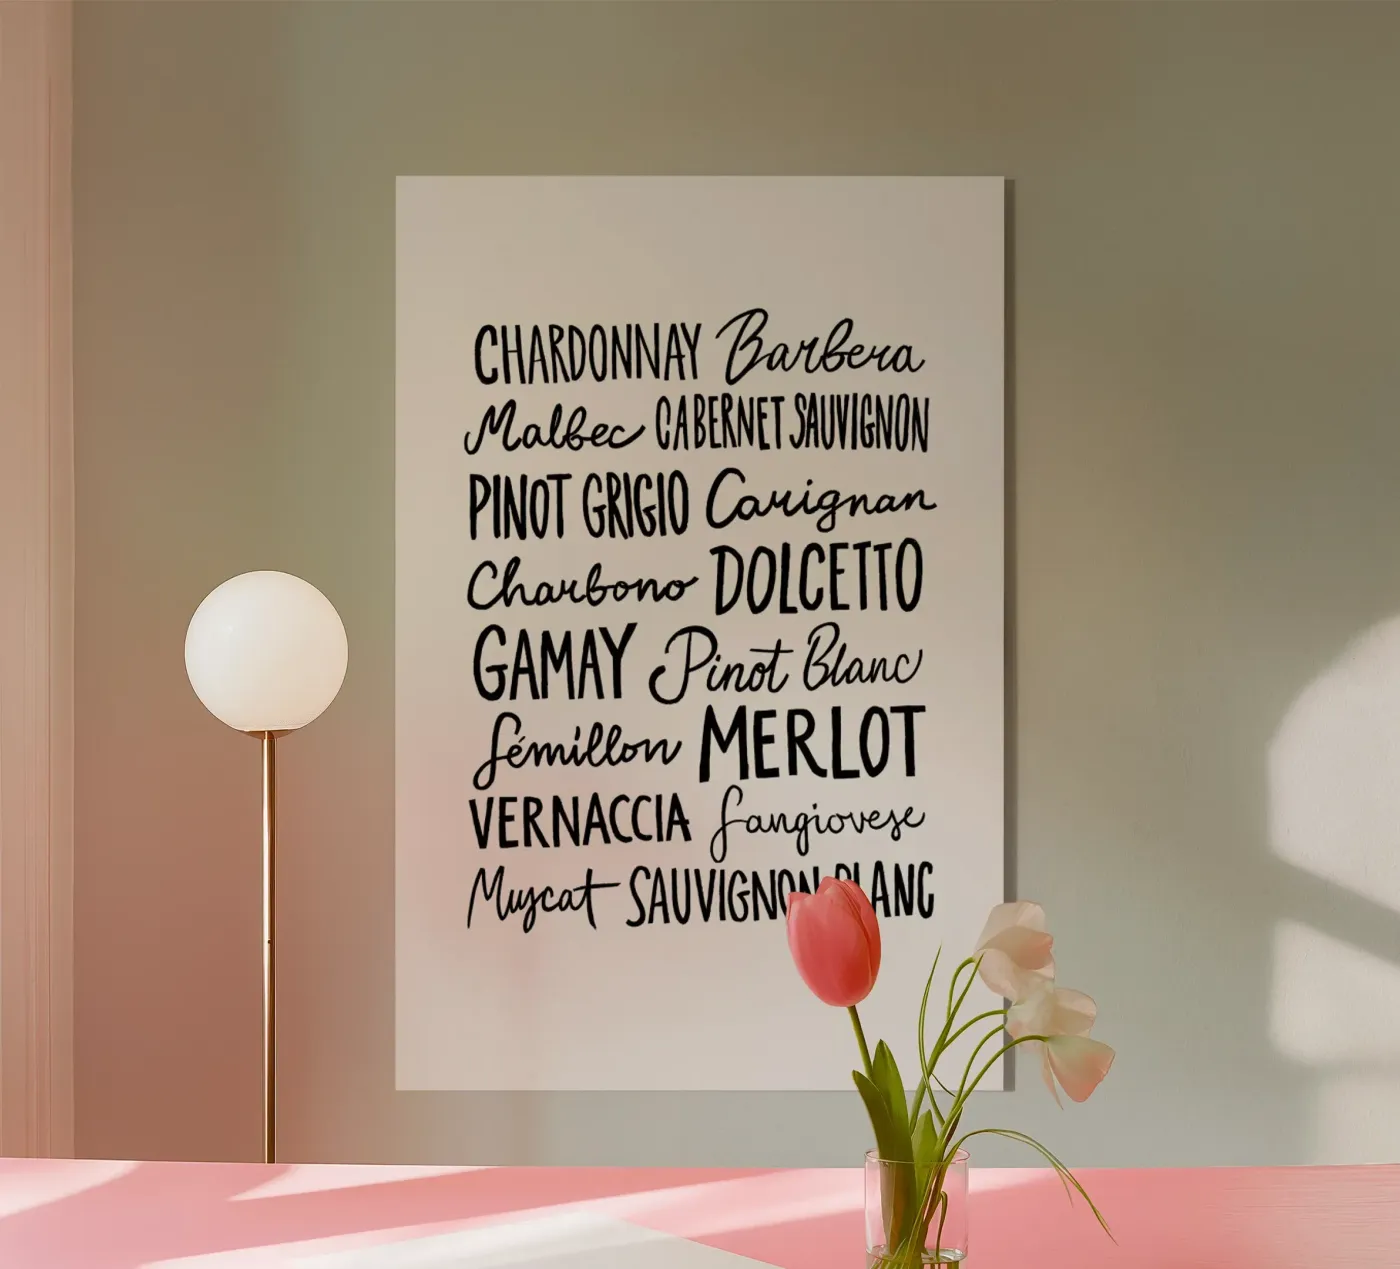 CHARDONNAY Barbera
Malbec CABERNET SAUVIGNON
PINOT GRIGIO Carignan
Charbono DOLCETTO
GAMAY Pinot Blanc
Sémillon MERLOT
VERNACCIA Sangiovese
Muscat SAUVIGNON BLANC